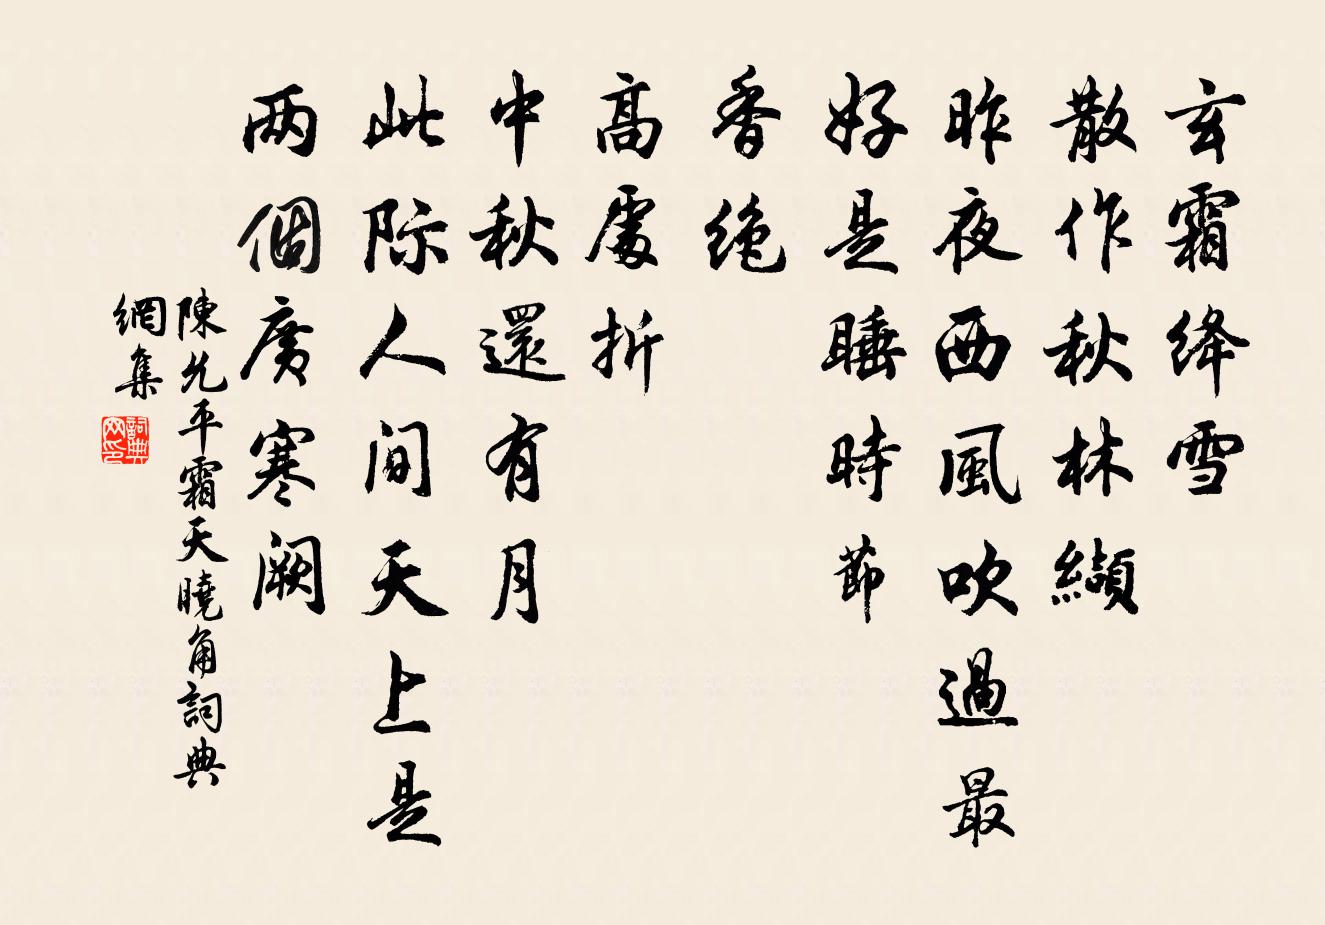 玄霜绛雪
散作秋林纈
昨夜西風吹過最
好是睡時節
香绝
高處折
中秋還有月
此际人间天上是
两個廣寒阙
陳允平霜天曉角詞典
網集
詞典
网印